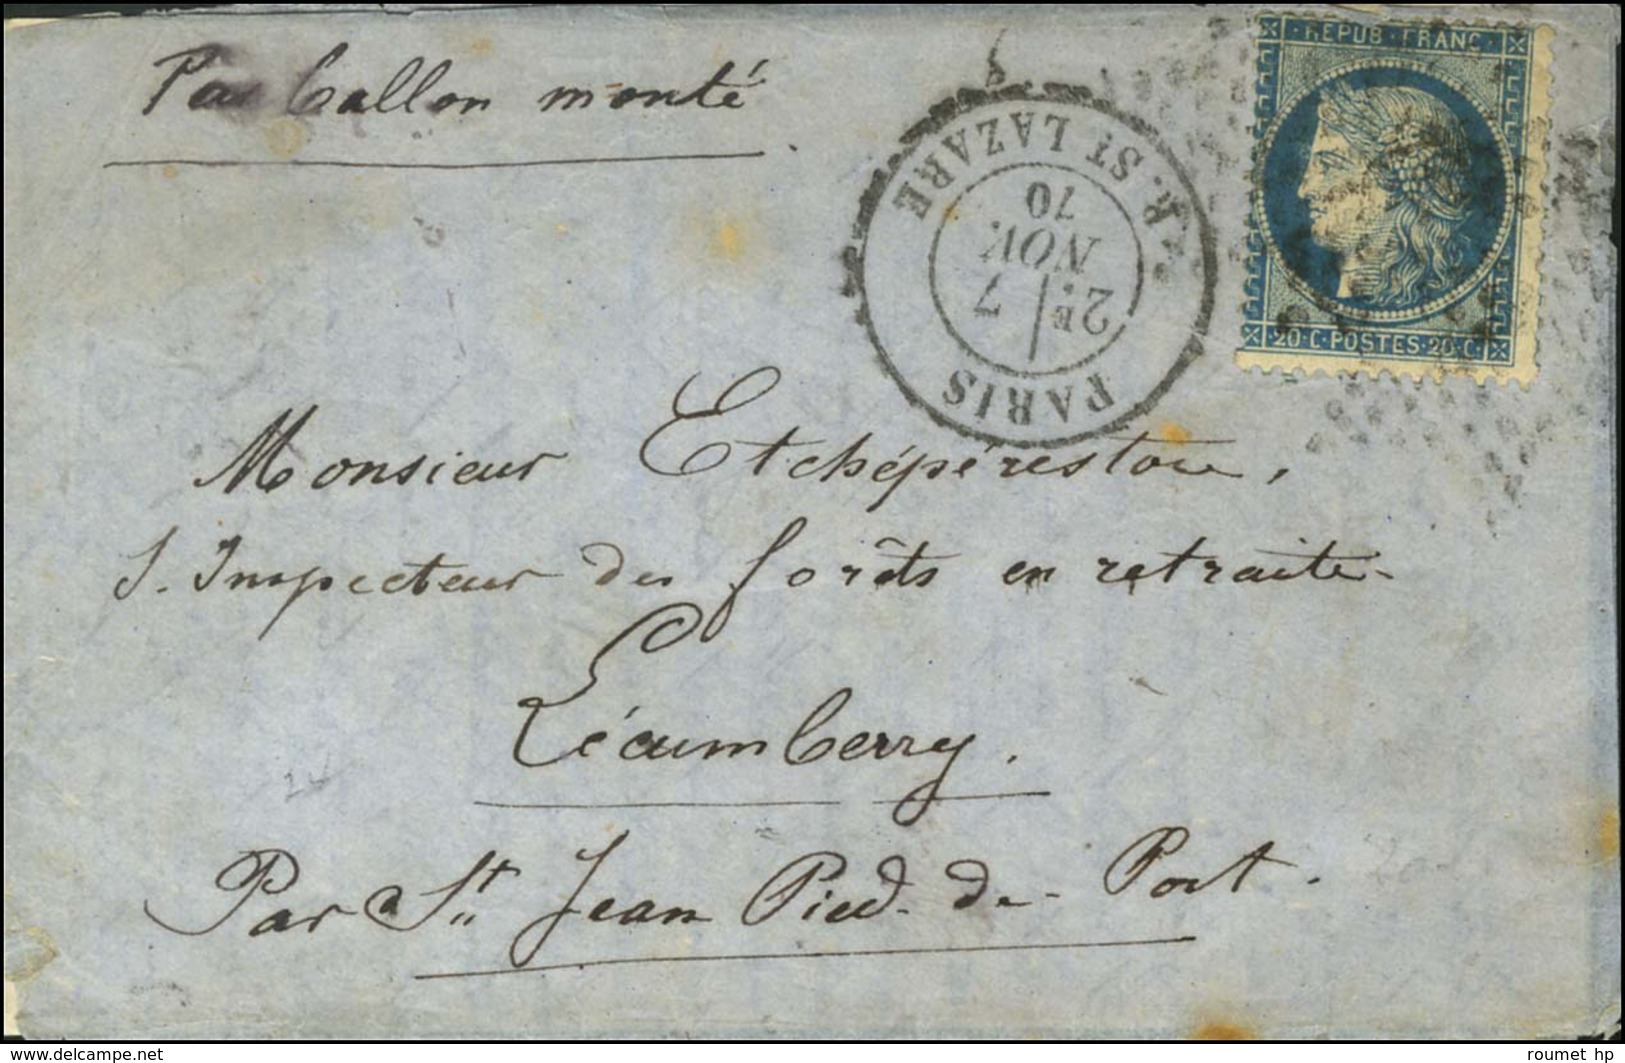 Par ballon monté
REPUB. FRANC.
20·C·POSTES·20·C
R. ST LAZARE
70
NOV.
2E 7
PARIS
Monsieur Etchépérestou,
S. Inspecteur des forêts en retraite
Lécumberry.
Par St Jean Pied-de-Port.
www.delcampe.net
roumet_hp